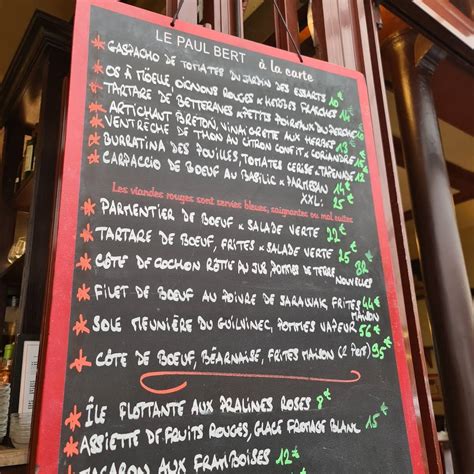 LE PAUL BERT à la carte
* GASPACHO DE TOMATES DU JARDIN DES ESSARTS 10€
* OS À MOELLE, OIGNONS ROUGES & HERBES FRAICHES 14€
* TARTARE DE BETTERAVES & PETITS POIREAUX DU PERCHE
* ARTICHAUT BRETON, VINAIGRETTE AUX HERBES 13€
* VENTRECHE DE THON AU CITRON CONFIT & CORIANDRE 15€
* BURRATINA DES POUILLES, TOMATES CERISE & TAPENADE 12€
* CARPACCIO DE BOEUF AU BASILIC & PARMESAN 14€
XXL: 25€
Les viandes rouges sont servies bleues, saignantes ou mal cuites
* PARMENTIER DE BOEUF & SALADE VERTE 22€
* TARTARE DE BOEUF, FRITES & SALADE VERTE 25€
* CÔTE DE COCHON RÔTIE AU JUS POMMES DE TERRE NOUVELLES 32€
* FILET DE BOEUF AU POIVRE DE SARAWAK, FRITES MAISON 44€
* SOLE MEUNIÈRE DU GUILVINEC, POMMES VAPEUR 56€
* CÔTE DE BOEUF, BÉARNAISE, FRITES MAISON (2 PERS) 95€
* ÎLE FLOTTANTE AUX PRALINES ROSES 8€
* ASSIETTE DE FRUITS ROUGES, GLACE FROMAGE BLANC 15€
* MACARON AUX FRAMBOISES 12€